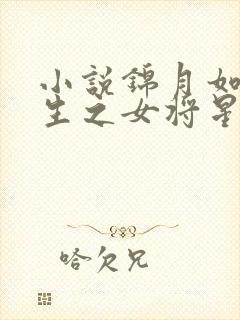 小說錦月如
生之女将星
哈欠兄